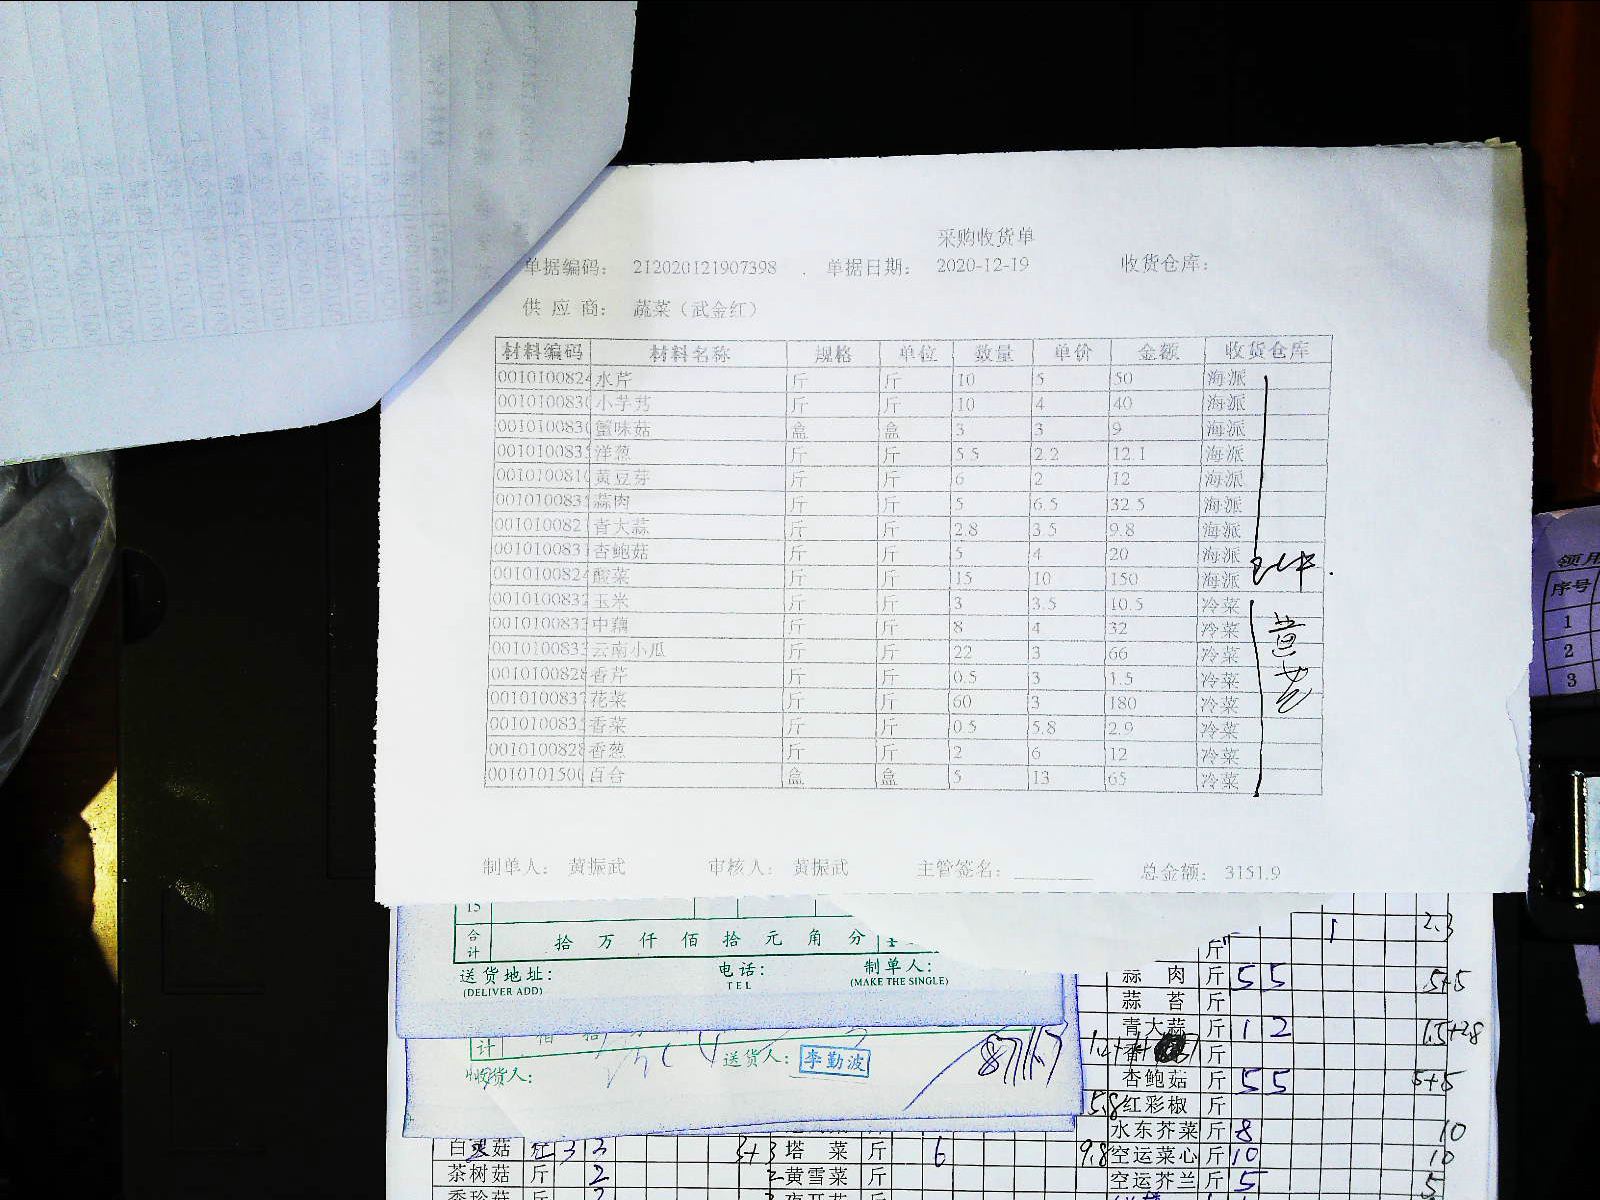 采购收货单
单据编码： 212020121907398 . 单据日期： 2020-12-19 收货仓库：
供 应 商： 蔬菜（武金红）
材料编码 材料名称 规格 单位 数量 单价 金额 收货仓库
001010082 水芹 斤 斤 10 5 50 海派
001010083 小芋艿 斤 斤 10 4 40 海派
001010083 蟹味菇 盒 盒 3 3 9 海派
001010083 洋葱 斤 斤 5.5 2.2 12.1 海派
001010081 黄豆芽 斤 斤 6 2 12 海派
001010083 蒜肉 斤 斤 5 6.5 32.5 海派
001010082 青大蒜 斤 斤 2.8 3.5 9.8 海派
001010083 杏鲍菇 斤 斤 5 4 20 海派
001010082 酸菜 斤 斤 15 10 150 海派
001010083 玉米 斤 斤 3 3.5 10.5 冷菜
001010083 中藕 斤 斤 8 4 32 冷菜
001010083 云南小瓜 斤 斤 22 3 66 冷菜
001010082 香芹 斤 斤 0.5 3 1.5 冷菜
001010083 花菜 斤 斤 60 3 180 冷菜
001010083 香菜 斤 斤 0.5 5.8 2.9 冷菜
001010082 香葱 斤 斤 2 6 12 冷菜
001010150 百合 盒 盒 5 13 65 冷菜
制单人： 黄振武 审核人： 黄振武 主管签名： 总金额： 3151.9
领用
序号
1
2
3
15
合计 拾 万 仟 佰 拾 元 角 分
送货地址： 电话： 制单人：
(DELIVER ADD) TEL (MAKE THE SINGLE)
计 佰 拾
收货人： 送货人： 李勤波
斤 1 2.3
蒜 肉 斤 5 5 5+5
蒜 苔 斤
青大蒜 斤 1 2 1.5+2.8
斤
杏鲍菇 斤 5 5 5+5
5.8 红彩椒 斤
水东芥菜 斤 8 10
白 菇 3 3 3+3 塔 菜 斤 6 9.8 空运菜心 斤 10 10
茶树菇 斤 2 2 黄雪菜 斤 空运芥兰 斤 5 5